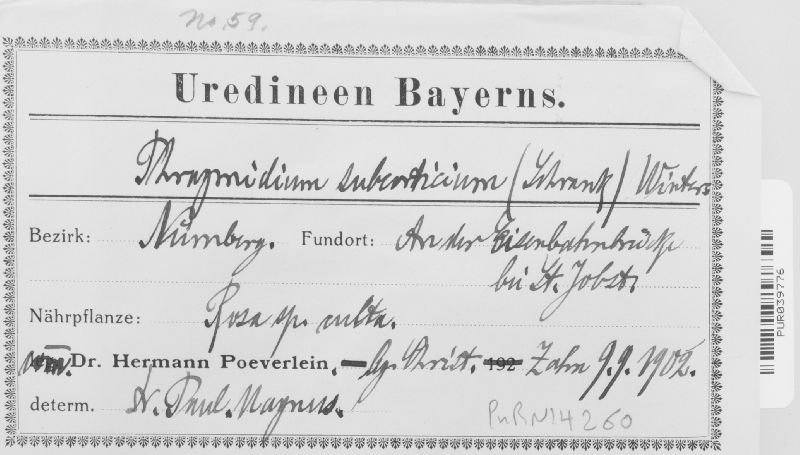 No. 59.
Uredineen Bayerns.
Phragmidium subcorticium (Schrank) Winter
Bezirk: Nürnberg. Fundort: An der Eisenbahnbrücke
bei St. Jobst.
Nährpflanze: Rosa sp. culta.
Dr. Hermann Poeverlein, 192 9.9.1902.
determ. Dr. Paul Magnus.
PurN14260
PUR039776